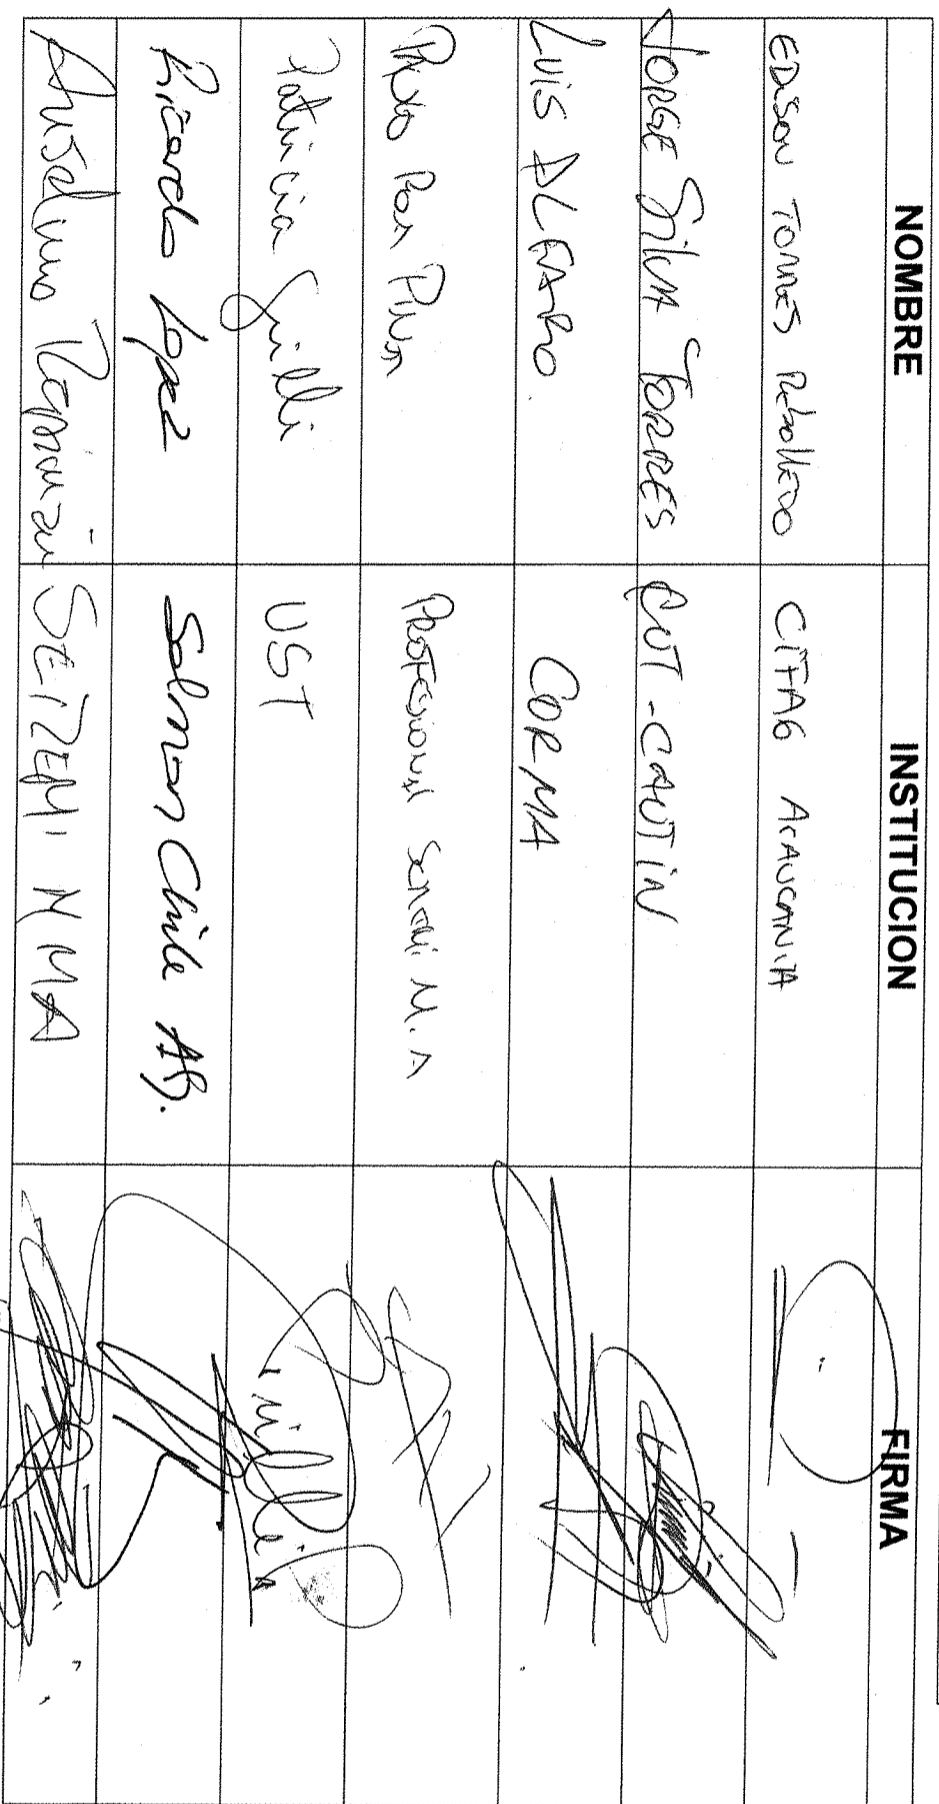 NOMBRE INSTITUCION FIRMA
EDISON TORRES Rebolledo CITAG ARAUCANIA
JORGE SILVA TORRES CUT - CAUTIN
LUIS ALFARO CORMA
PROFESIONAL SEREMI M. A
Patricia UST
Ricardo Lopez Salmon Chile AG.
Anselmo SEREMI M MA